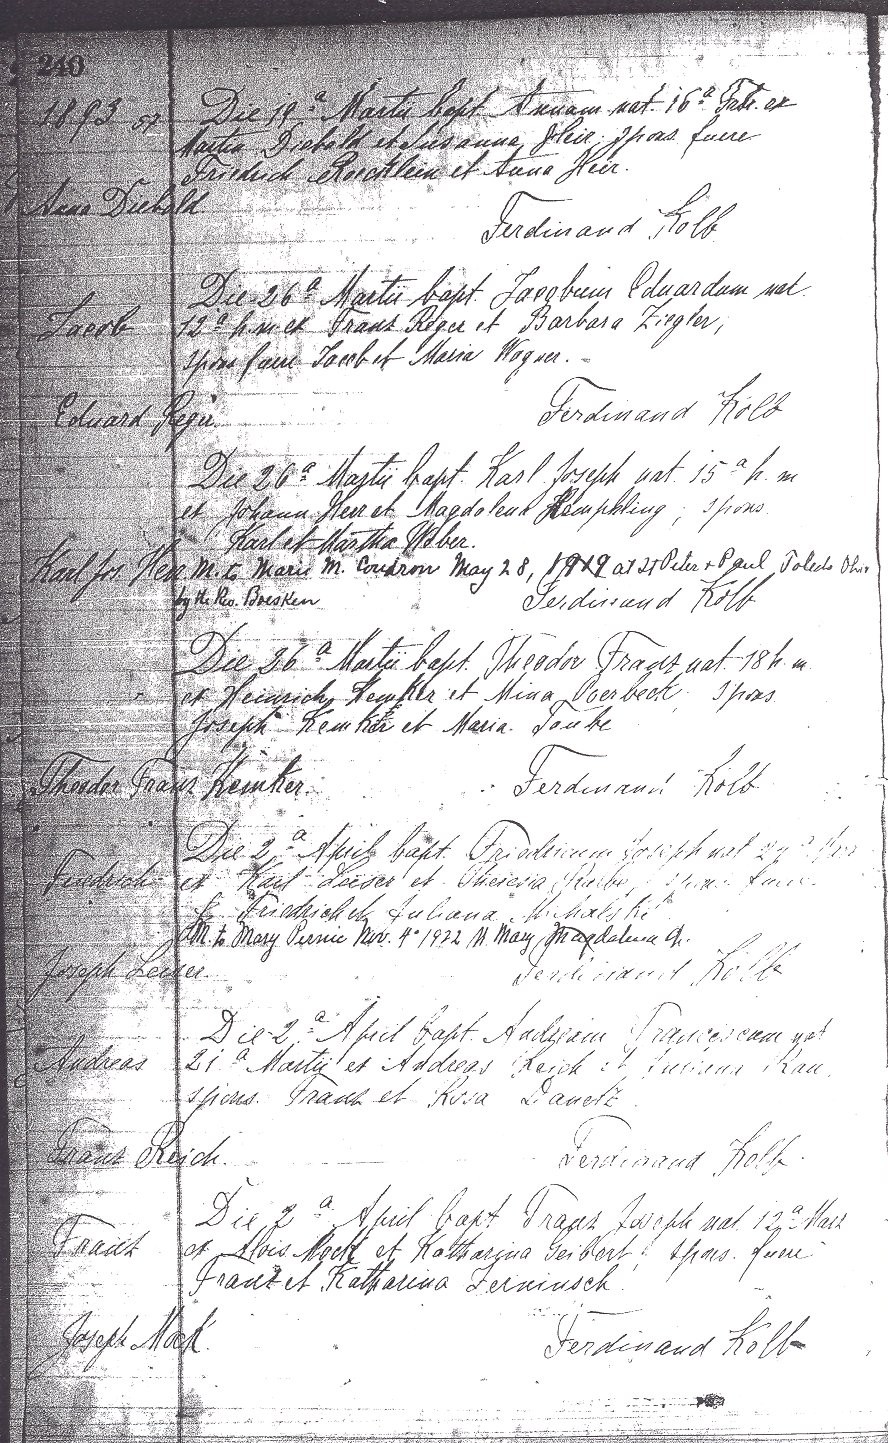 240
1893 Die 19ª Martii bapt. Annam nat. 16ª Febr. ex
Martin Diebold et Susanna Heir; spons fuere
Friedrich Roecklein et Anna Heir.
Anna Diebold
Ferdinand Kolb
Die 26ª Martii bapt. Jacobum Eduardum nat.
Jacob 12ª h. m ex Franz Reger et Barbara Ziegler;
spons fuere Jacob et Maria Wagner.
Eduard Reger
Ferdinand Kolb
Die 26ª Martii bapt. Karl Joseph nat. 15ª h. m
ex Johann Herr et Magdalena Hempfling; spons.
Karl et Martha Weber.
Karl Jos. Herr M. to Marie M. Coudron May 28, 1919 at St Peter & Paul Toledo Ohio
by the Rev. Boesken
Ferdinand Kolb
Die 26ª Martii bapt. Theodor Franz nat. 18 h. m.
ex Heinrich Kemker et Mina Overbeck; spons
Joseph Kemker et Maria Taube
Theodor Franz Kemker.
Ferdinand Kolb
Die 2ª April bapt. Friedricum Joseph nat
Friedrich ex Karl Leiser et Theresia spons fuere
Friedrich et Juliana Michalski
M. to Mary Pernic Nov. 4 1922 Mary Magdalena Ch.
Joseph Leiser
Ferdinand Kolb
Die 2ª April bapt. Andream Franciscum nat
Andreas 21ª Martii ex Andreas Reich et Juliana
spons. Franz et Rosa
Franz Reich.
Ferdinand Kolb.
Die 2ª April bapt Franz Joseph nat. 12ª Mart
Franz ex Alois Mock et Katharina Seibert; spons. fuere
Franz et Katharina
Joseph Mock
Ferdinand Kolb